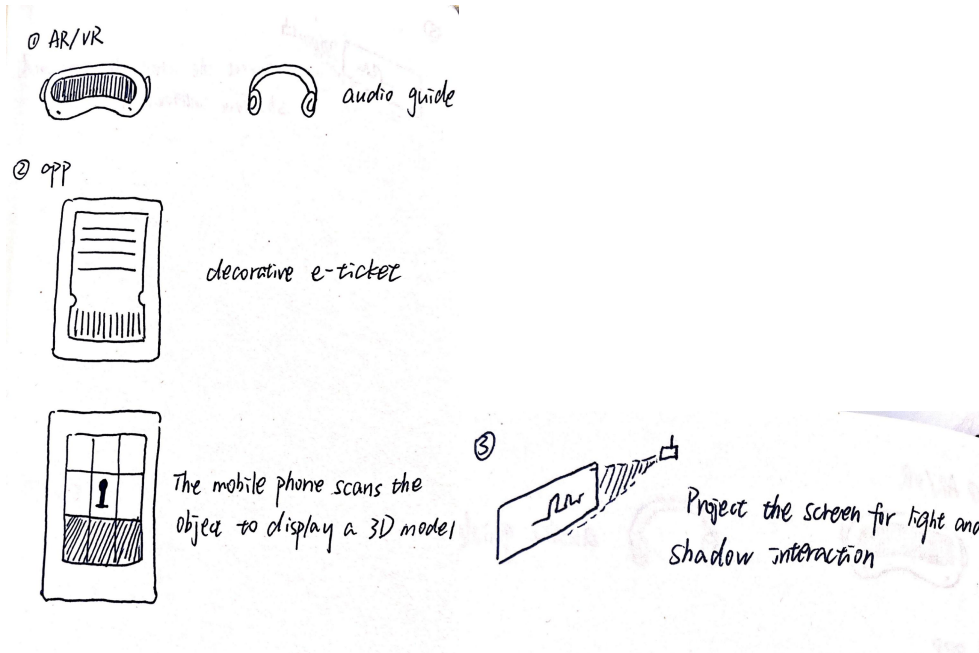 ① AR/VR
audio guide
② app
decorative e-ticket
The mobile phone scans the
object to display a 3D model
③
Project the screen for light and
shadow interaction